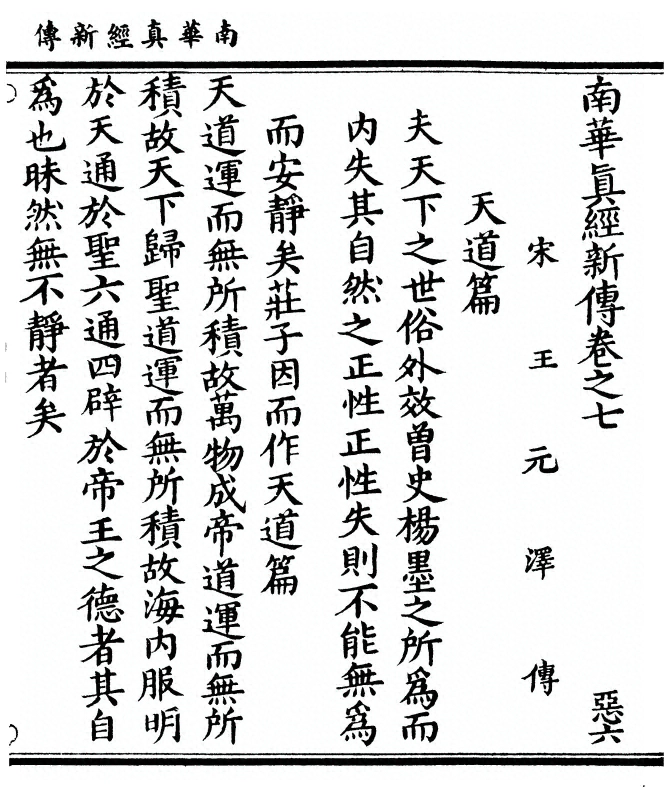 南華真經新傳
南華眞經新傳卷之七 惡六
宋王元澤傳
天道篇
夫天下之世俗外效曾史楊墨之所爲而
内失其自然之正性正性失則不能無爲
而安靜矣莊子因而作天道篇
天道運而無所積故萬物成帝道運而無所
積故天下歸聖道運而無所積故海内服明
於天通於聖六通四辟於帝王之德者其自
爲也昧然無不靜者矣